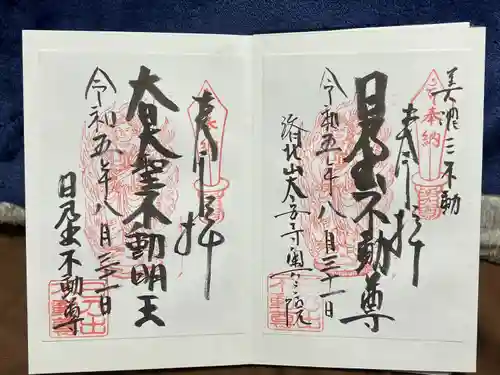 美濃三不動
奉納
奉拝
日乃出不動尊
令和五年八月三十一日
済北山大安寺奥之院
奉拝
大日大聖不動明王
令和五年八月三十一日
日乃出不動尊